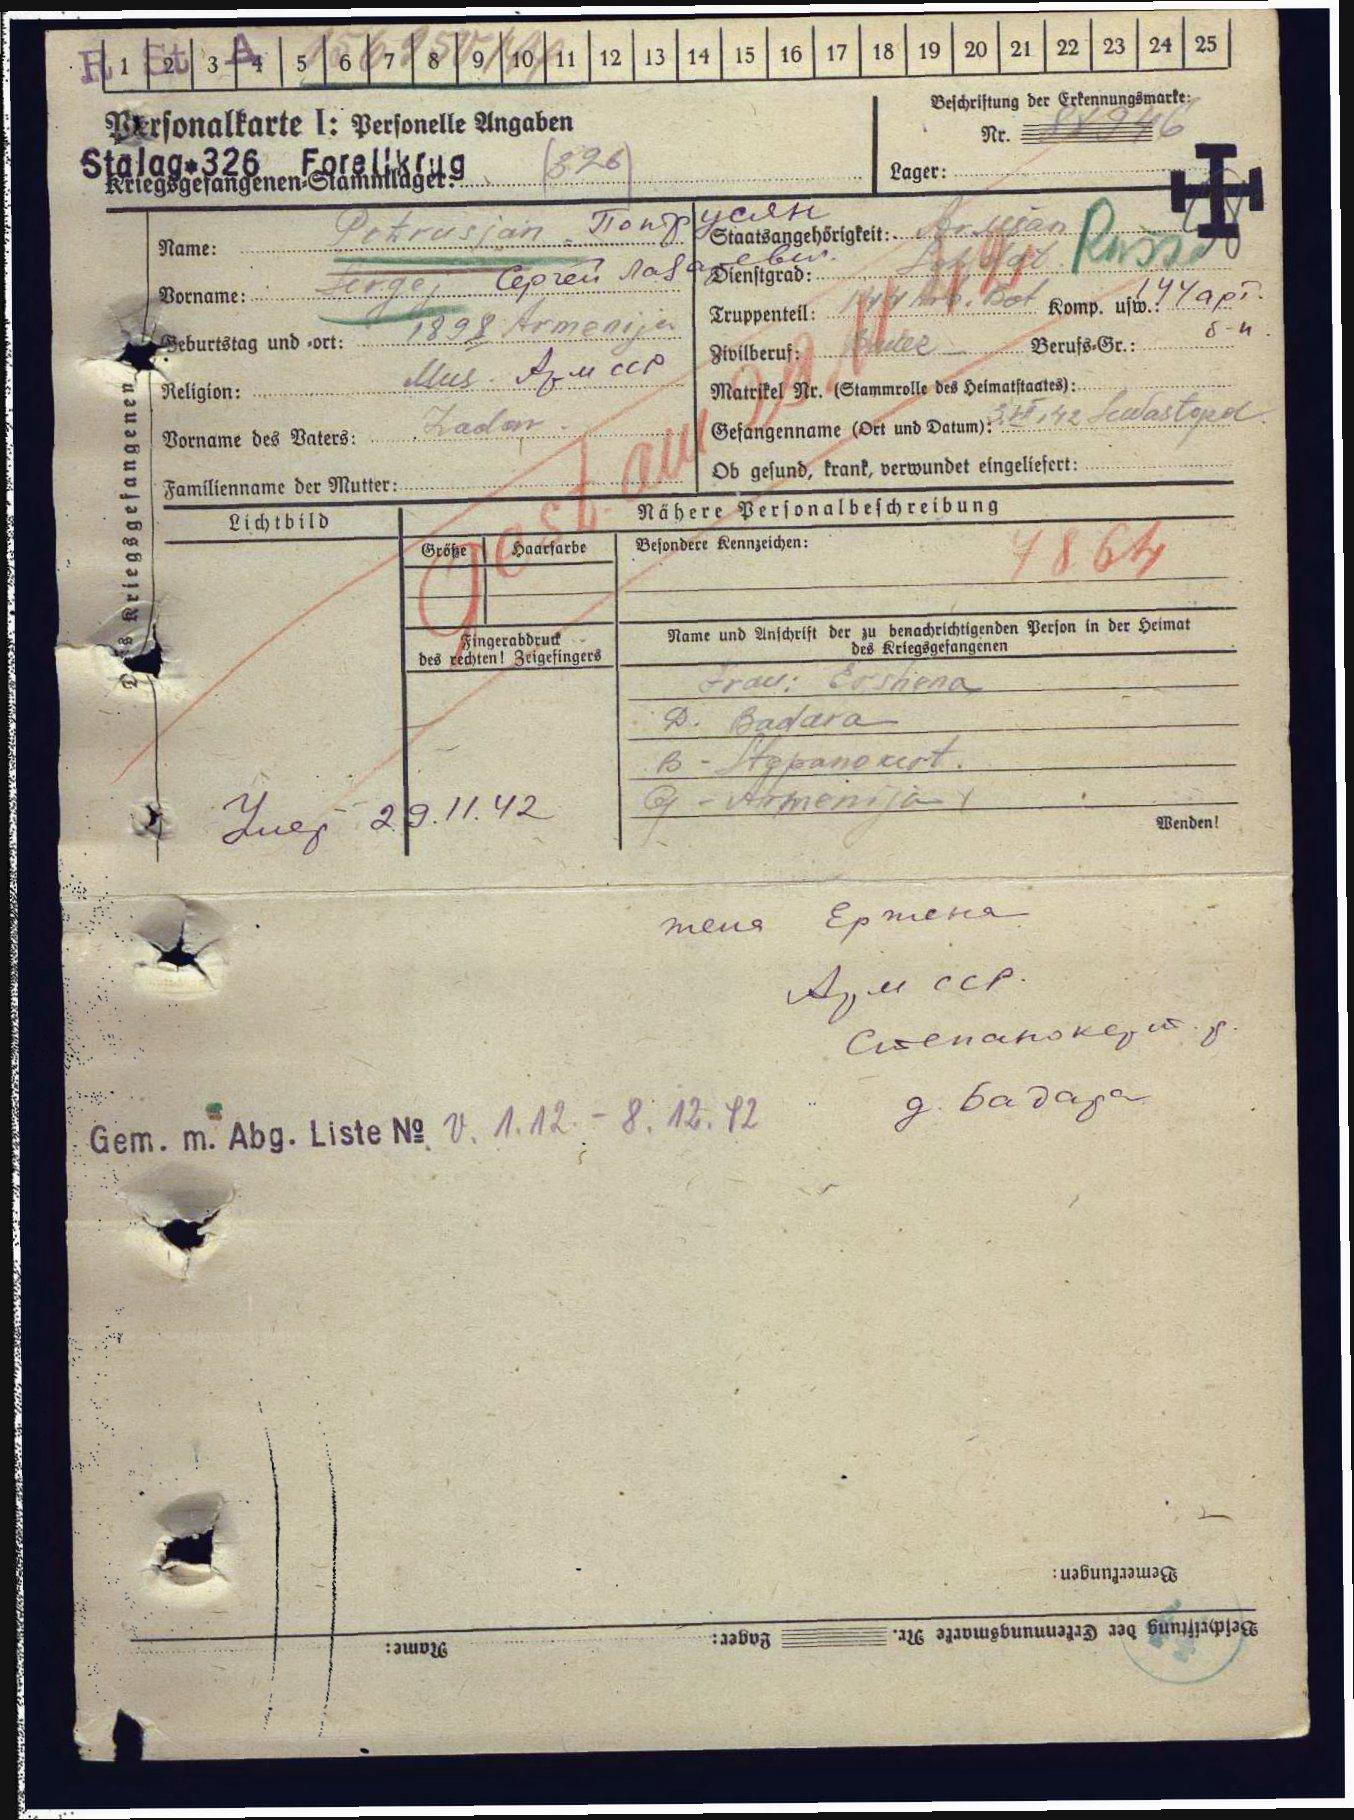 R St A
1 2 3 4 5 6 7 8 9 10 11 12 13 14 15 16 17 18 19 20 21 22 23 24 25
Personalkarte I: Personelle Angaben
Beschriftung der Erkennungsmarke:
Nr. 88946
Stalag 326 Forellkrug
Kriegsgefangenen-Stammlager: (326)
Lager:
Name: Petrusjan
Staatsangehörigkeit: Armejan
Russe
Vorname: Sergej Сергей
Dienstgrad: Soldat
Truppenteil: 144 Arb. Bat Komp. usw.: 144 арт.
Geburtstag und -ort: 1898 Armenija
Zivilberuf: Berufs-Gr.:
Religion: Mus. Арм ССР
Matrikel Nr. (Stammrolle des Heimatstaates):
Vorname des Vaters:
Gefangenname (Ort und Datum): 3.VII.42 Sewastopol
Familienname der Mutter:
Ob gesund, krank, verwundet eingeliefert:
Des Kriegsgefangenen
Gest. am 29.11.42
Lichtbild
Nähere Personalbeschreibung
Größe Haarfarbe Besondere Kennzeichen:
7864
Fingerabdruck
des rechten! Zeigefingers
Name und Anschrift der zu benachrichtigenden Person in der Heimat
des Kriegsgefangenen
Frau: Ershena
D. Badara
B - Stepanokert.
G - Armenija
Умер 29.11.42
Wenden!
жена Ержена
Арм ССР.
Степанокерт. р.
д. Бадара
Gem. m. Abg. Liste № v. 1.12. - 8.12.42
Bemerkungen:
Beschriftung der Erkennungsmarke Nr. Lager: Name: